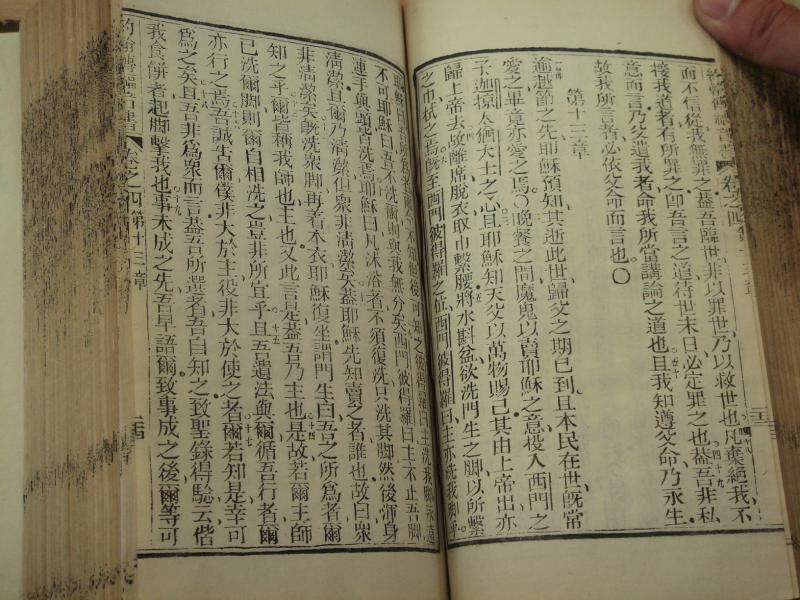 而不信從我無罪之蓋吾臨世非以罪世乃以救世也凡棄絕我不
接我道者有所罪之卽吾言之道待世末日必定罪之也蓋吾非私
意而言乃父遣我者命我所當講論之道也且我知遵父命乃永生
故我所言者必依父命而言也〇
第十三章
逾越節之先耶穌預知其逝此世歸父之期已到且本民在世旣常
愛之畢竟亦愛之焉〇晚餐之間魔鬼以賣耶穌之意投入西門之
子迦掠人猶大士之心且耶穌知天父以萬物賜己其由上帝出亦
歸上帝去故離席脫衣取巾繫腰將水斟盆欲洗門生之脚以所繫
之巾拭之焉旣至西門彼得羅之位西門彼得羅曰主亦洗我脚乎
耶穌曰吾所爲者爾今不知他後可知之彼得羅曰主洗我脚永遠
不可耶穌曰若不洗爾則與我無分矣西門彼得羅曰主不止吾脚
連手與頭皆洗焉耶穌曰凡沐浴者不須復洗只洗其脚然後渾身
清潔且爾乃清潔但衆非清潔矣蓋耶穌先知賣之者誰也故曰衆
非清潔矣旣洗衆脚再著本衣耶穌復坐謂門生曰吾之所爲者爾
知之乎爾皆稱我師也主也又此言是蓋吾乃主也是故若爾主師
已洗爾脚則爾自相洗之豈非所宜乎且吾遺法與爾循吾行者爾
亦行之焉吾誠告爾僕非大於主役非大於使之者爾若知是幸可
爲之矣且吾非爲衆而言蓋吾所選者吾自知之致聖錄得騐云偕
我食餠者起脚擊我也事未成之先吾早語爾致事成之後爾等可
約翰傳福音書 卷之四 第十三章